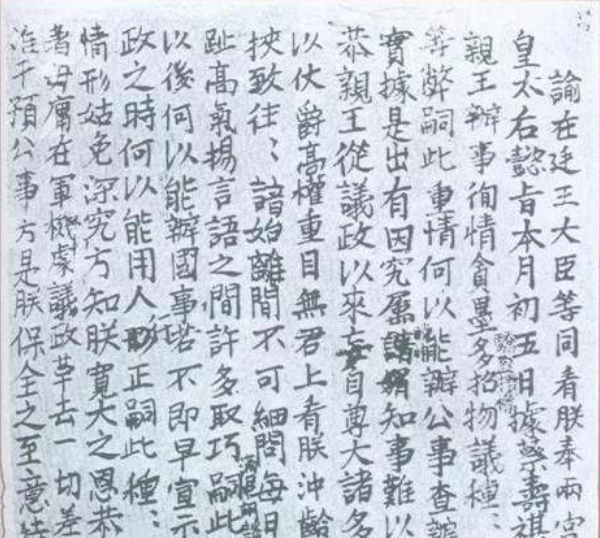 諭在廷王大臣等同看朕奉兩宮
皇太后懿旨本月初五日據蔡壽祺
親王辦事徇情貪墨多招物議種:
等弊嗣此重情何以能辦公事查辦
實據是出有因究屬曖昧知事難以
恭親王從議政以來妄自尊大諸多
以仗爵高權重目無君上看朕沖齡
挾致往:諳始離間不可細問每日
趾高氣揚言語之間許多取巧嗣此
以後何以能辦國事若不即早宣示
政之時何以能用人行正嗣此種:
情形姑免深究方知朕寬大之恩恭
着毋庸在軍機處議政革去一切差
准干預公事方是朕保全之至意特